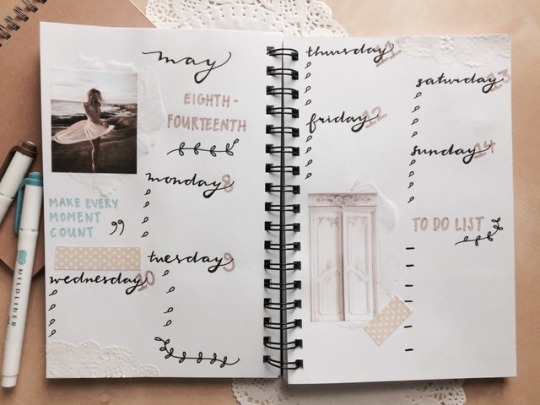 may
EIGHTH-
FOURTEENTH
MAKE EVERY
MOMENT
COUNT ”
monday 8
tuesday 9
wednesday 10
thursday 11
friday 12
saturday 13
sunday 14
TO DO LIST
MILDLINER